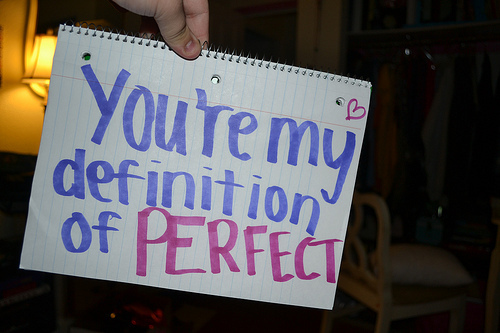 You're my
definition
of PERFECT